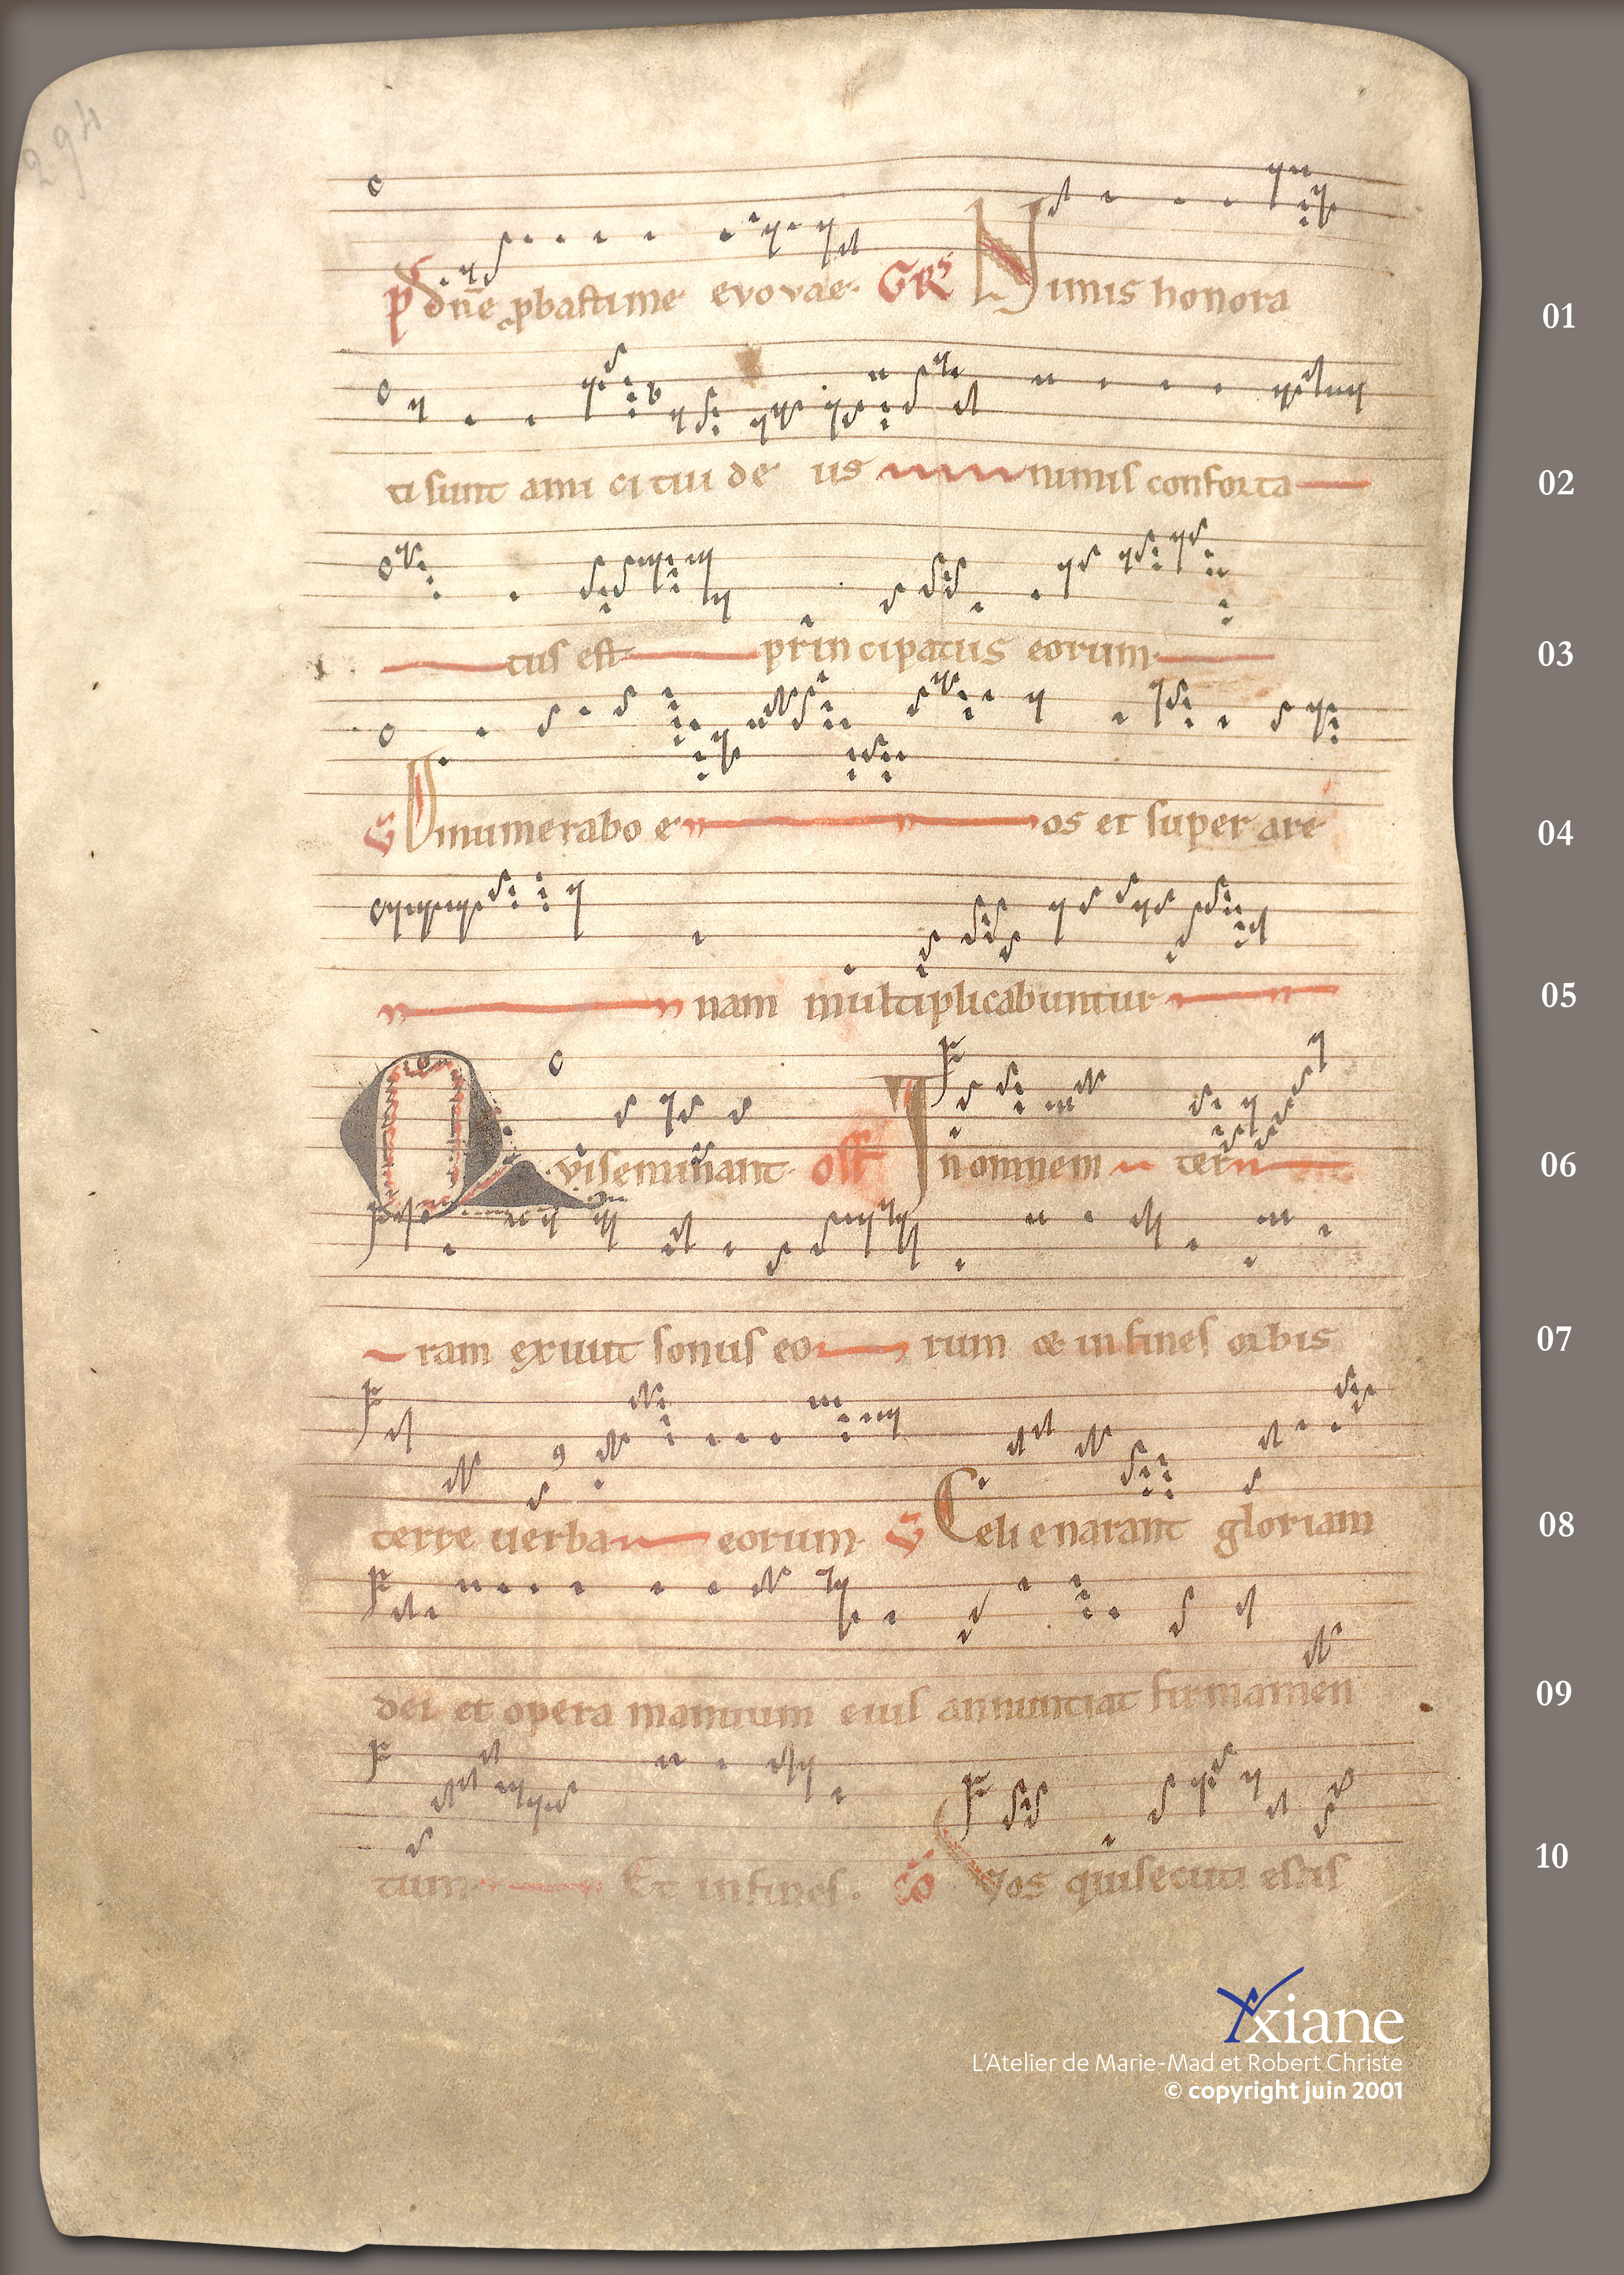 294
p dn̄e ꝓbasti me evovae. GRS Nimis honora 01
ti sunt ami ci tui de us nimis conforta 02
tus est principatus eorum 03
V Dinumerabo e os et super are 04
nam multiplicabuntur 05
Qui seminant. off In omnem ter 06
ram exiuit sonus eo rum & in fines orbis 07
terre uerba eorum. V Celi enarant gloriam 08
dei et opera manuum eius annuntiat firmamen 09
tum Et in fines. cō Vos qui secuti estis 10
Yxiane
L'Atelier de Marie-Mad et Robert Christe
© copyright juin 2001